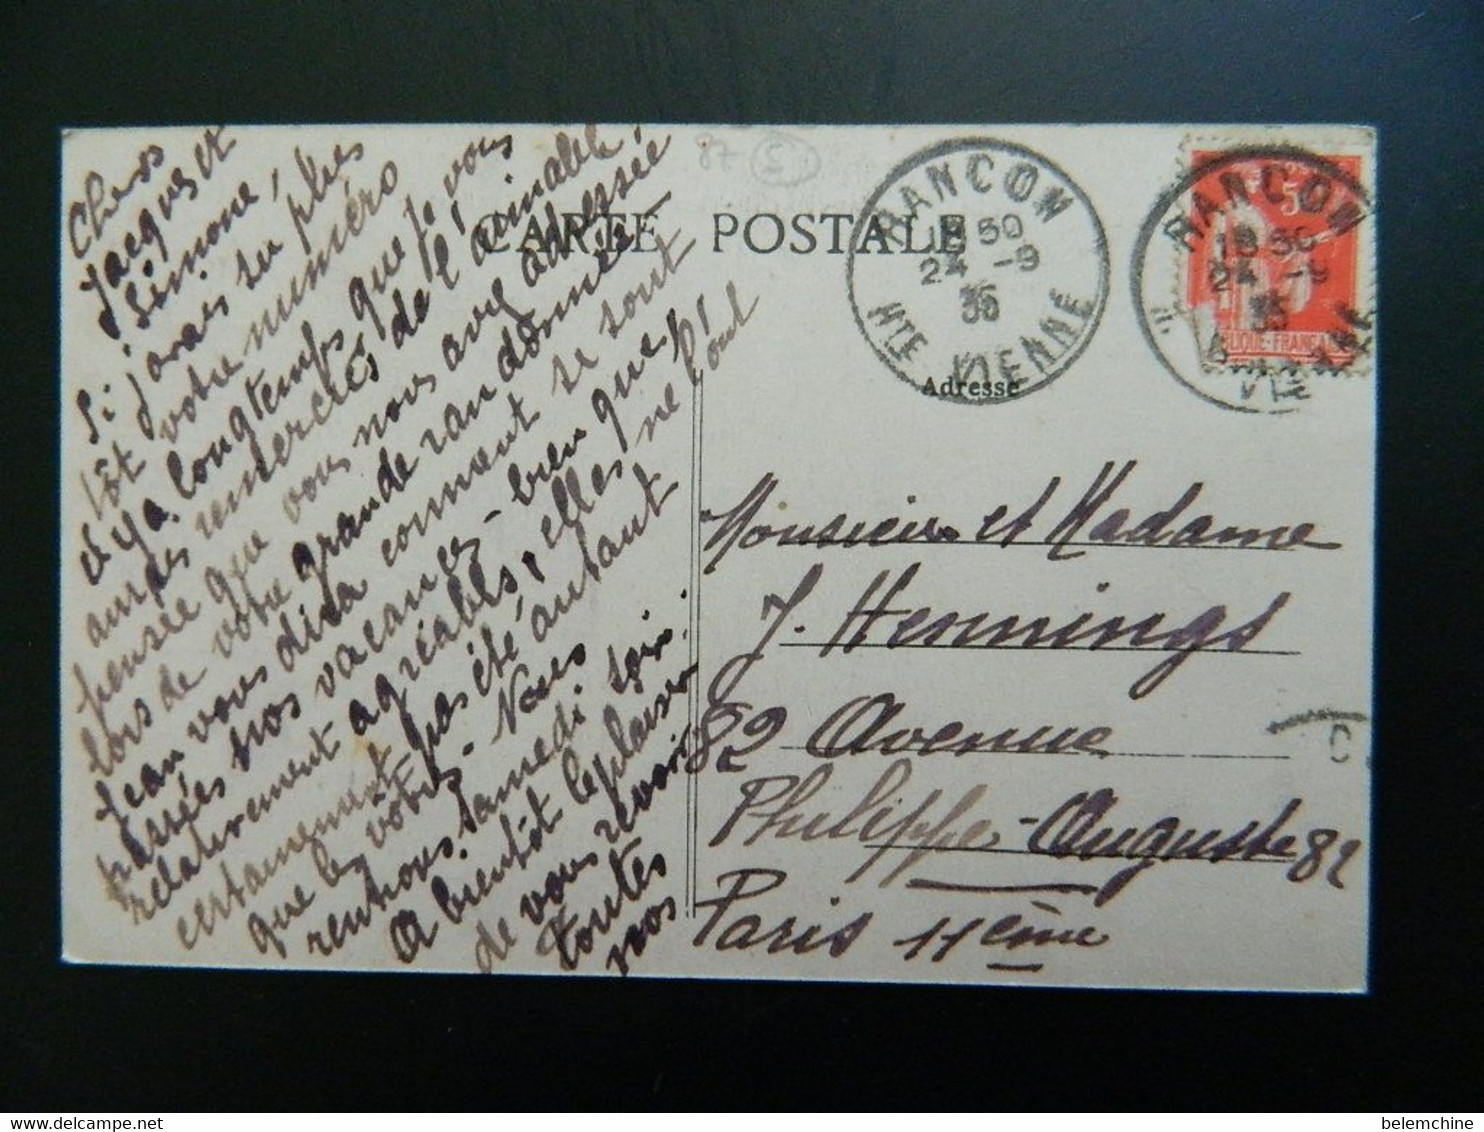 Chers
Jacques et
Simone,
Si j'avais su plus
tôt votre numéro
il y a longtemps que je vous
aurais remerciés de l'aimable
pensée que vous nous avez adressée
lors de votre grande randonnée.
Jean vous dira comment se sont
passées nos vacances - bien que,
relativement agréables, elles ne l'ont
certainement pas été autant
que les vôtres. Nous
rentrons samedi soir.
A bientôt le plaisir
de vous revoir
toutes
nos
87 S
CARTE POSTALE
Adresse
RANCON
18 50
24 -9
35
HTE VIENNE
RANCON
18 50
24 -9
35
Monsieur et Madame
J. Hennings
82 Avenue
Philippe-Auguste 82
Paris 11ème
C
belemchine